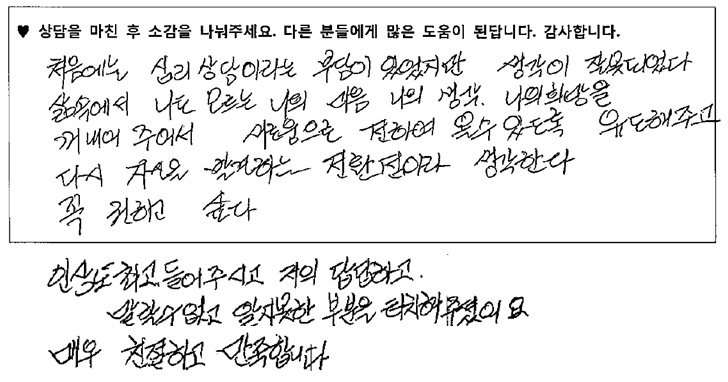 ♥ 상담을 마친 후 소감을 나눠주세요. 다른 분들에게 많은 도움이 된답니다. 감사합니다.
처음에는 심리 상담이라는 부담이 있었지만 생각이 잘못되었다
삶속에서 나도 모르는 나의 마음 나의 생각. 나의희망을
꺼내어 주어서 새로움으로 전하여 올수 있도록 유도해주고
다시 자신을 발견하는
생각한다
꼭 권하고 싶다
인상도 좋고 들어주시고 저의 답답하고.
말할수없고 알지못한 부분을 터치해주셨어요
매우 친절하고 만족합니다